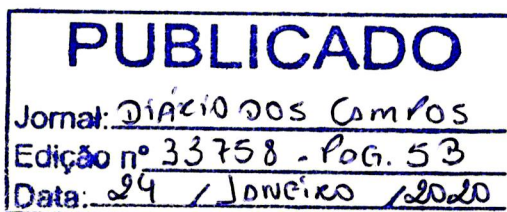 PUBLICADO
Jornal: DIÁRIO DOS CAMPOS
Edição nº 33758 - PÁG. 5B
Data: 24 / JANEIRO / 2020